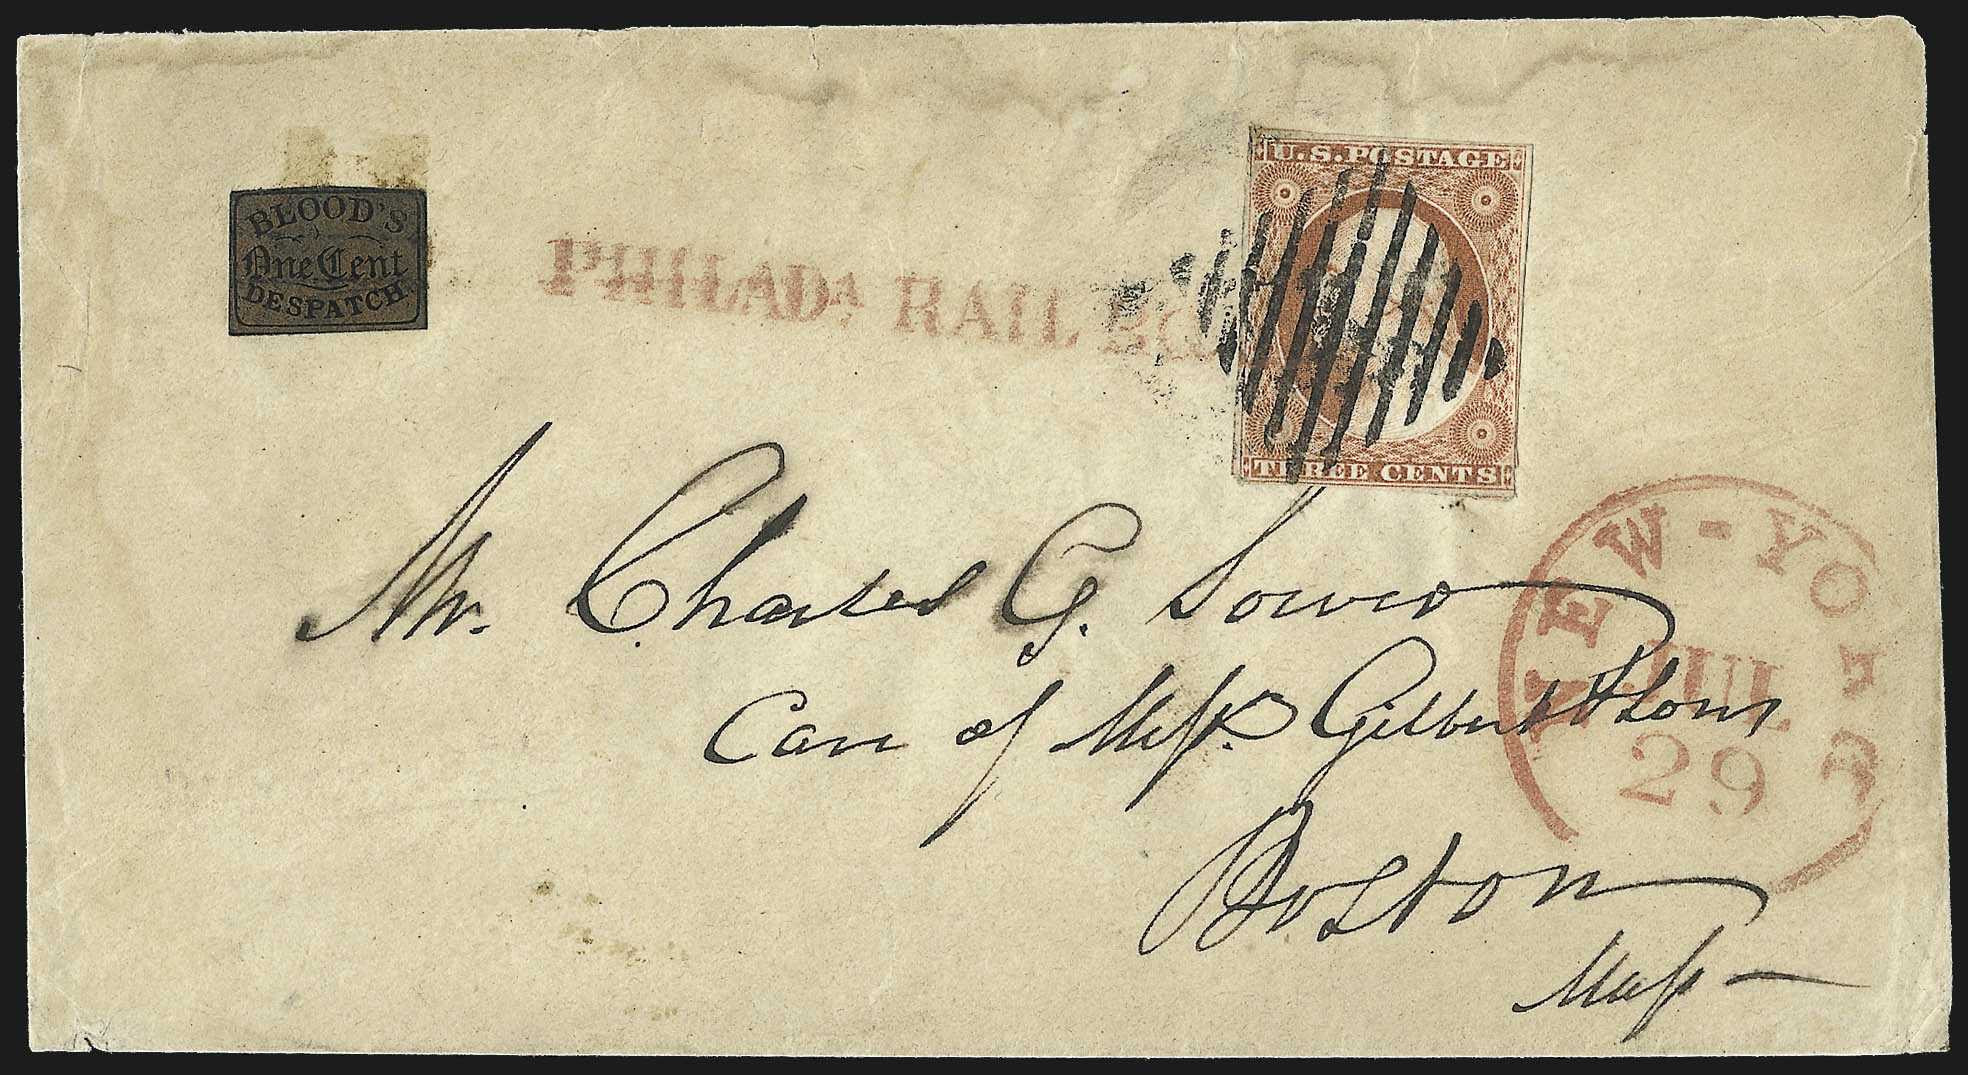 BLOOD'S
One Cent
DESPATCH
PHILADA. RAIL RO
U.S. POSTAGE
THREE CENTS
NEW-YORK
JUL
29
Mr. Charles G. Sower
Care of Mess. Gilbert & Sons
Boston
Mass